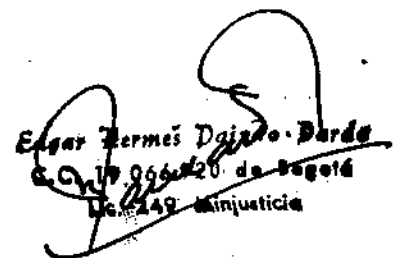 Edgar Hermeš Da Pardo
C. C. 17.066.420 de Bogotá
Lic. 249 Minjusticia